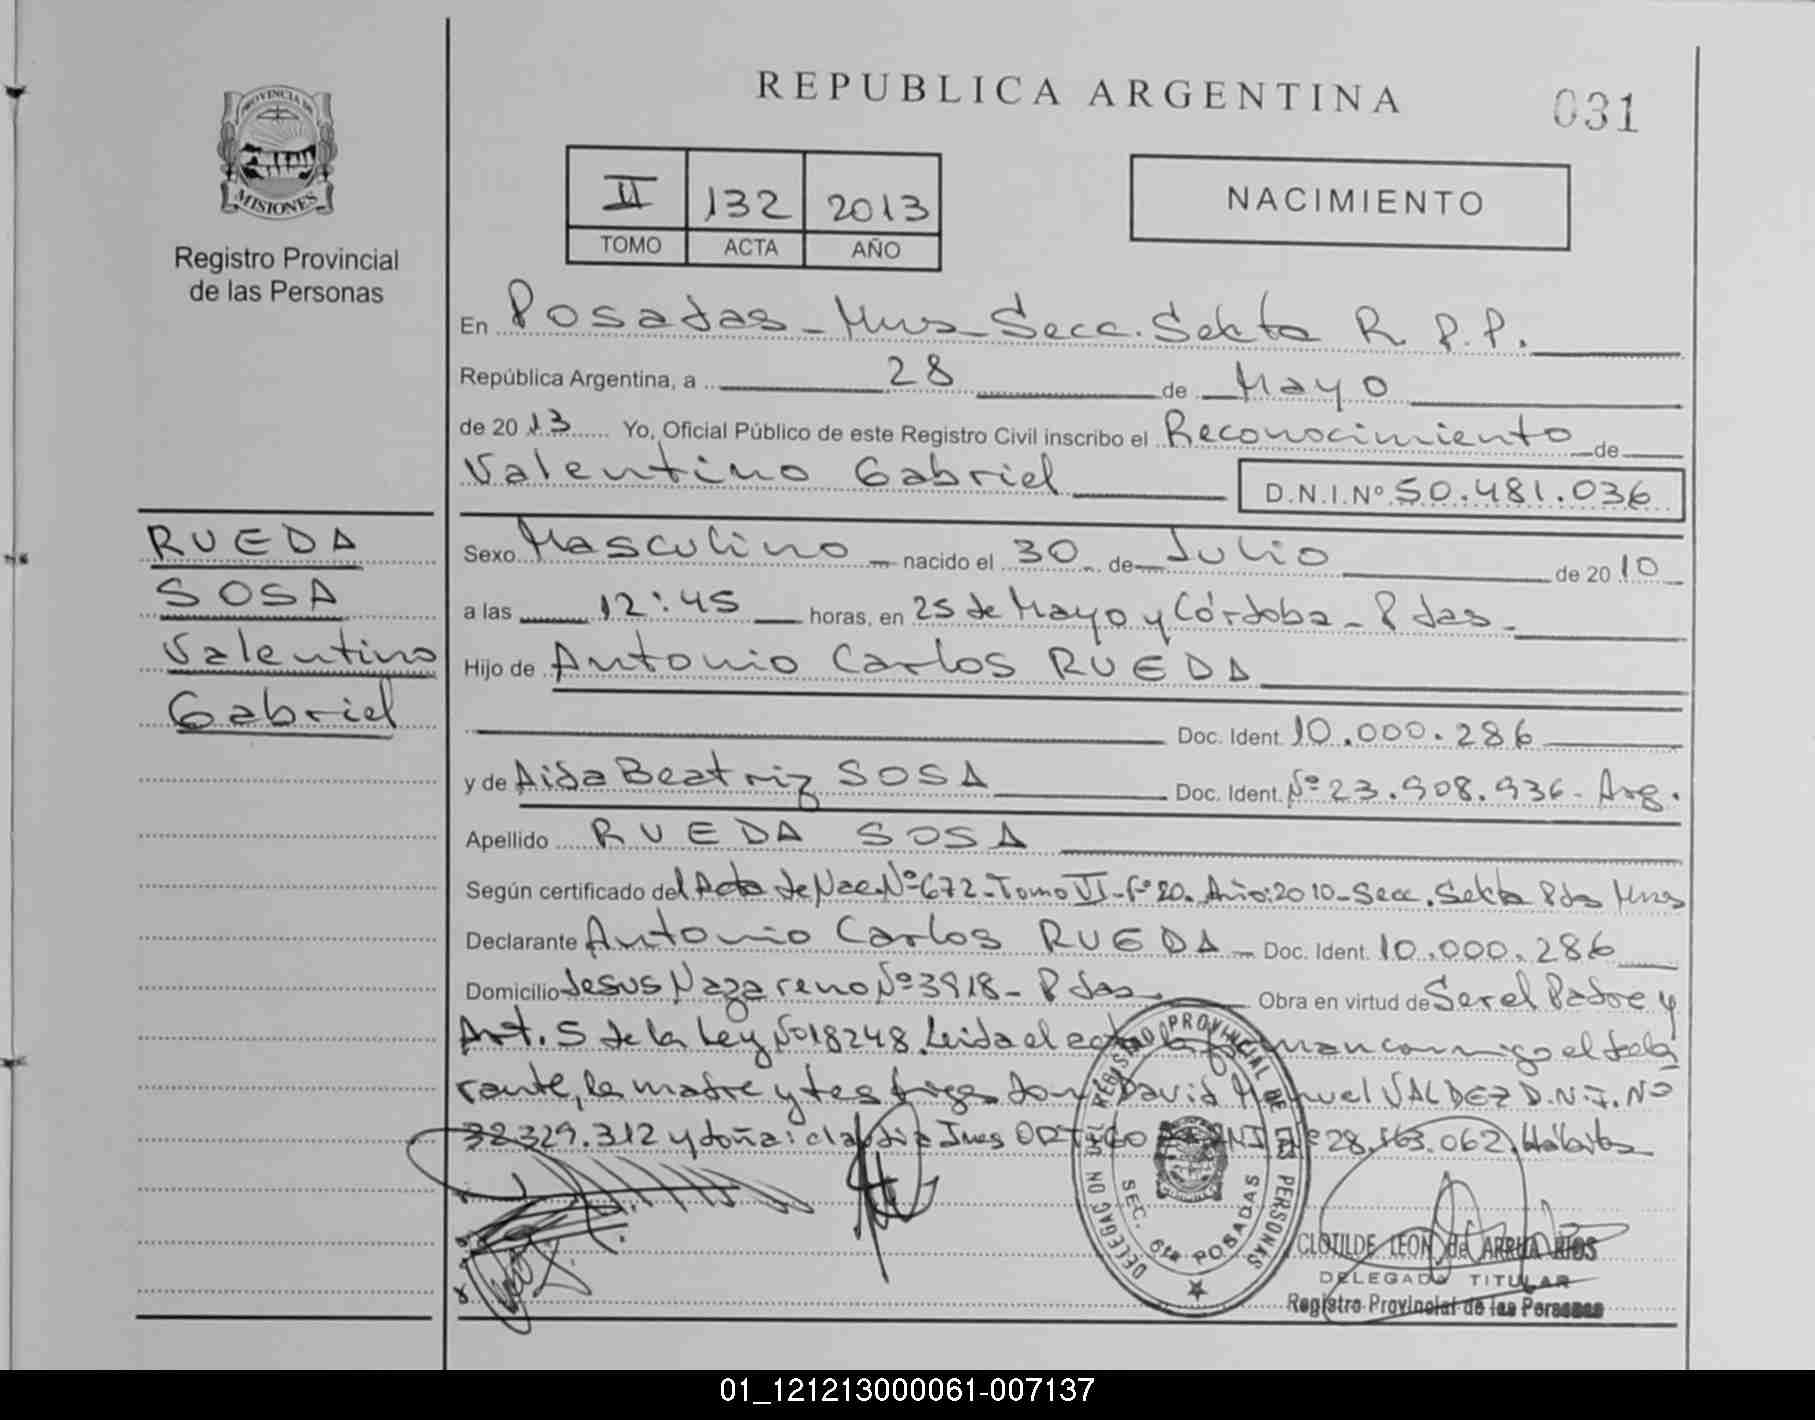 REPUBLICA ARGENTINA
031
PROVINCIA DE
MISIONES
Registro Provincial
de las Personas
II 132 2013
TOMO ACTA AÑO
NACIMIENTO
En Posadas - Mnes - Secc. Sexta R.P.P.
República Argentina, a 28 de Mayo
de 2013 Yo, Oficial Público de este Registro Civil inscribo el Reconocimiento de
Valentino Gabriel D.N.I.Nº 50.481.036
RUEDA
SOSA
Valentino
Gabriel
Sexo Masculino nacido el 30 de Julio de 2010
a las 12:45 horas, en 25 de Mayo y Córdoba - Pdas -
Hijo de Antonio Carlos RUEDA
Doc. Ident. 10.000.286
y de Aida Beatriz SOSA Doc. Ident. Nº 23.908.936 - Arg.
Apellido RUEDA SOSA
Según certificado del Acta de Nac. Nº 672 - Tomo VI - Fº 20. Año: 2010 - Secc. Sexta Pdas Mnes
Declarante Antonio Carlos RUEDA - Doc. Ident. 10.000.286
Domicilio Jesus Nazareno Nº 3918 - Pdas. Obra en virtud de Ser el Padre y
Art. 5 de la Ley Nº 18248. Leida el acta la firman conmigo el decla
rante, la madre y testigos don: David Manuel VALDEZ D.N.I. Nº
32.329.312 y doña: Claudia Ines DNI Nº 28.163.062. Hábiles
DELEGACION DEL REGISTRO PROVINCIAL DE LAS PERSONAS
SEC. 6ta POSADAS
CLOTILDE LEON de ARRUA RIOS
DELEGADA TITULAR
Registro Provincial de las Personas
01_121213000061-007137